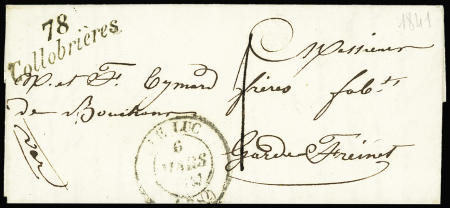 78
Collobrières
1841
Messieurs
P. et F. Eymard frères fabts
de Bouchons
Garde Freinet
Var
LE LUC
6
MARS